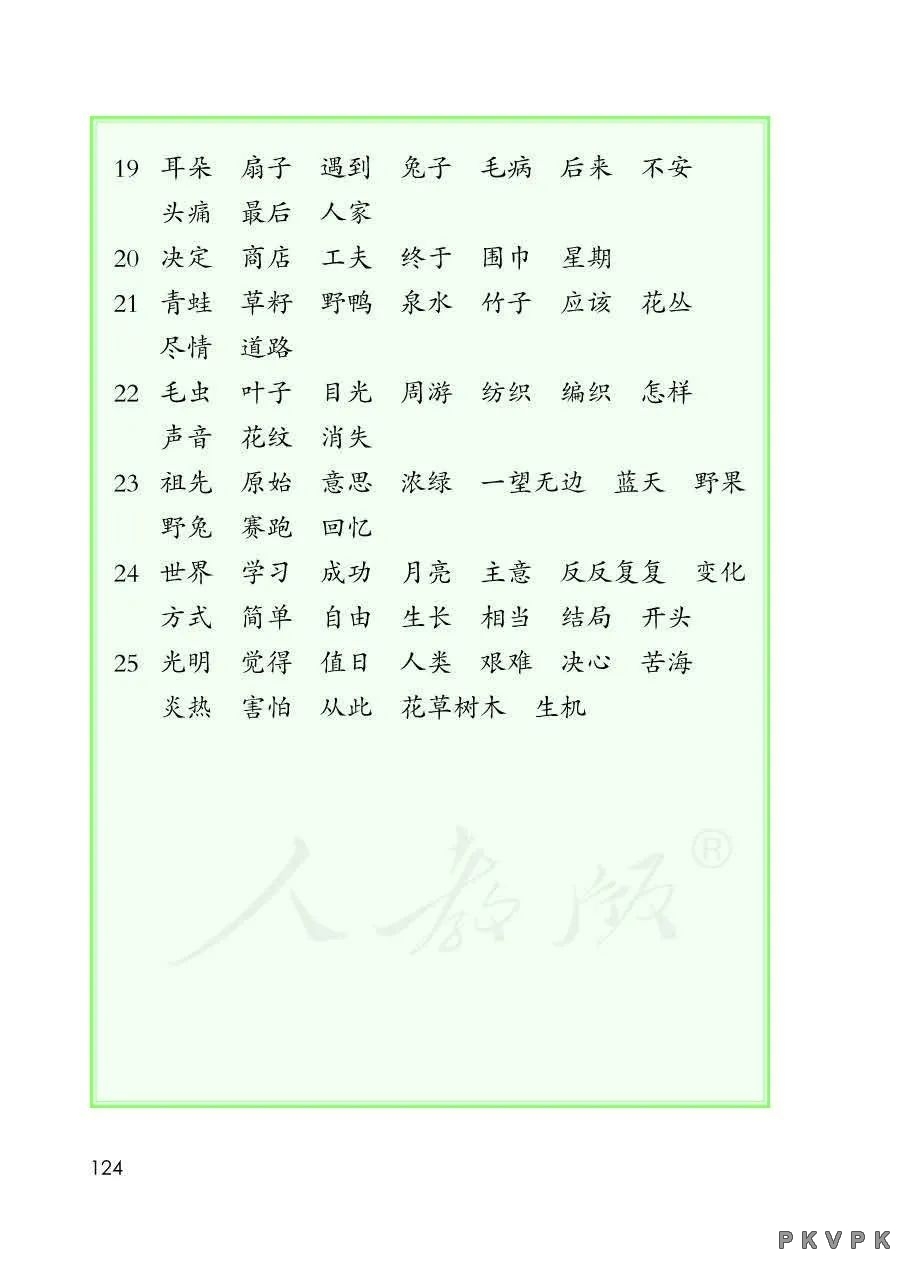 19 耳朵 扇子 遇到 兔子 毛病 后来 不安
头痛 最后 人家
20 决定 商店 工夫 终于 围巾 星期
21 青蛙 草籽 野鸭 泉水 竹子 应该 花丛
尽情 道路
22 毛虫 叶子 目光 周游 纺织 编织 怎样
声音 花纹 消失
23 祖先 原始 意思 浓绿 一望无边 蓝天 野果
野兔 赛跑 回忆
24 世界 学习 成功 月亮 主意 反反复复 变化
方式 简单 自由 生长 相当 结局 开头
25 光明 觉得 值日 人类 艰难 决心 苦海
炎热 害怕 从此 花草树木 生机
人教版®
124
PKVPK